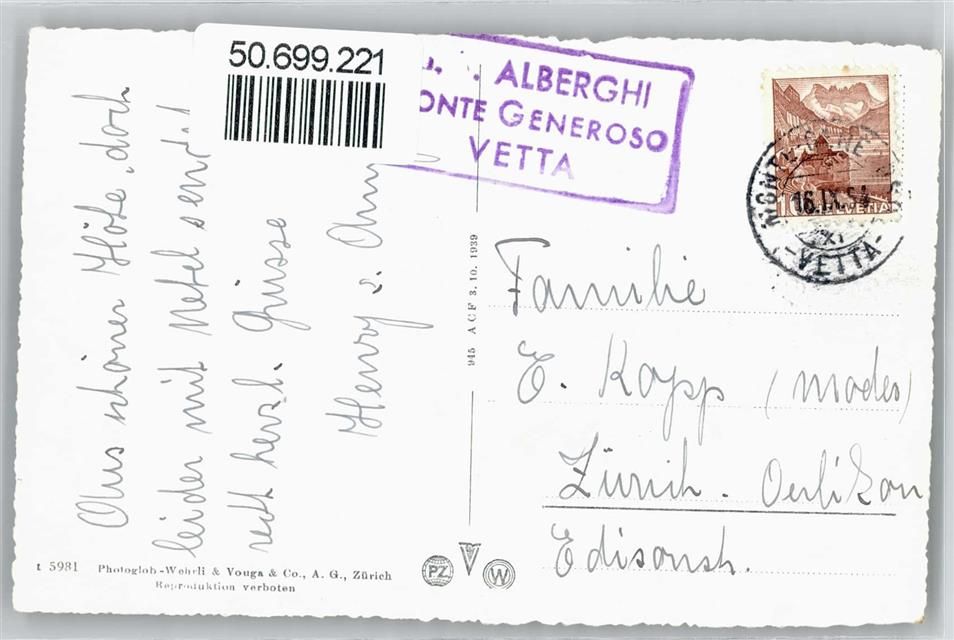 50.699.221
ALBERGHI
ONTE GENEROSO
VETTA
HELVETIA
16.IX.54
VETTA
Aus schöner Höhe, doch
leider mit Nebel send.!
recht herzl. Grüsse
Henry &
945 ACF 3.10.1939
Familie
E. Kopp (Modes)
Zürich. Oerlikon
Edisonstr.
t 5981 Photoglob-Wehrli & Vouga & Co., A. G., Zürich
Reproduktion verboten
PZ
V
W